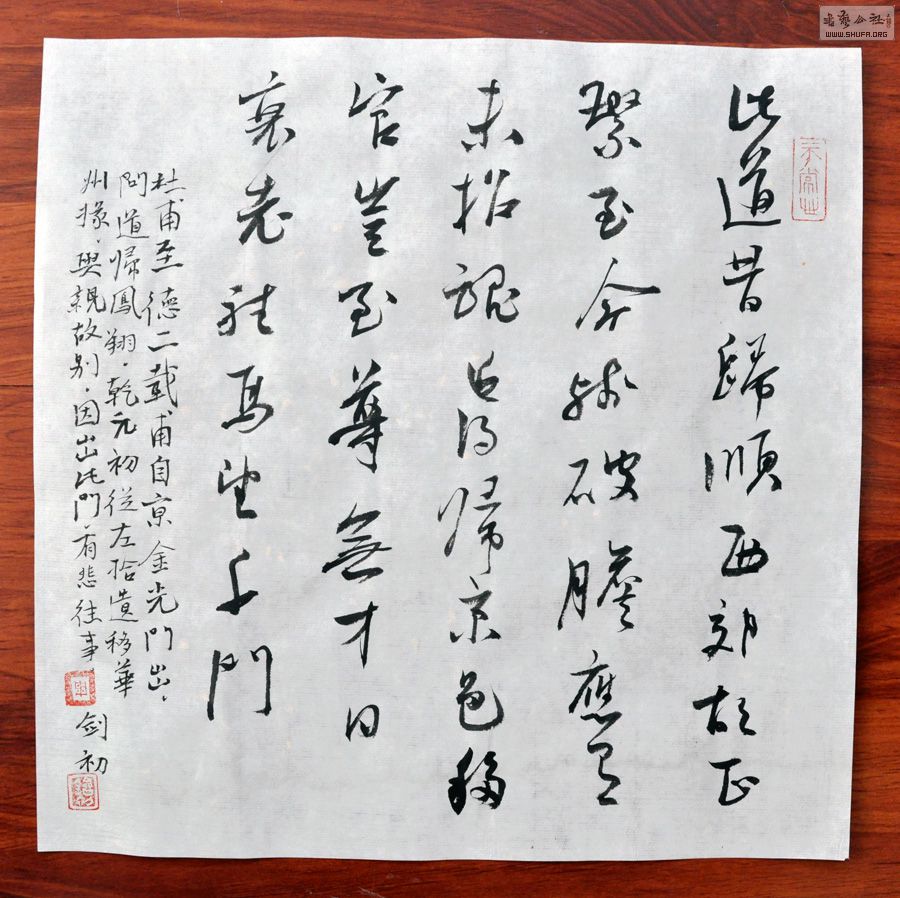 此道昔歸順西郊胡正
繁至今殘破膽應有
未招魂近得歸京邑移
官豈至尊無才日
衰老駐馬望千門
杜甫至德二載甫自京金光門出、
問道歸鳳翔、乾元初從左拾遺移華
州掾、與親故別、因出此門有悲往事
剑初
書藝公社
WWW.SHUFA.ORG